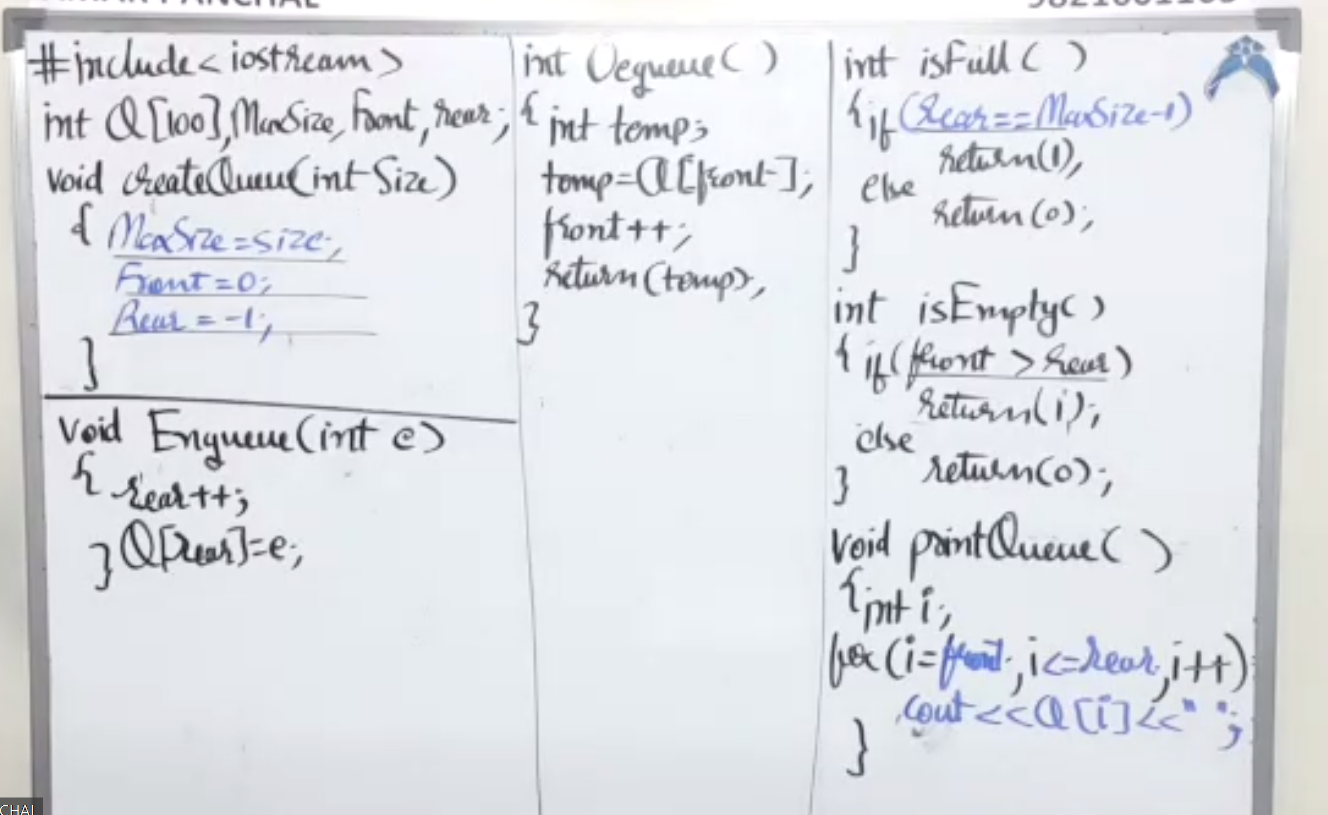 #include<iostream>
int Q[100],MaxSize, Front, rear;
void createQueue(int Size)
{ MaxSize=size;
Front=0;
Rear = -1;
}
void Enqueue(int e)
{ rear++;
} Q[rear]=e;
int Dequeue( )
{ int temp;
temp=Q[front-];
front++;
return(temp),
}
int isFull( )
{if(Rear==MaxSize-1)
return(1),
else
return(0);
}
int isEmpty()
{ if(front > rear)
return(1);
else
return(0);
}
void printQueue( )
{int i;
for(i=front;,i<=rear,i++)
cout<<Q[i]<<" ";
}
CHAL